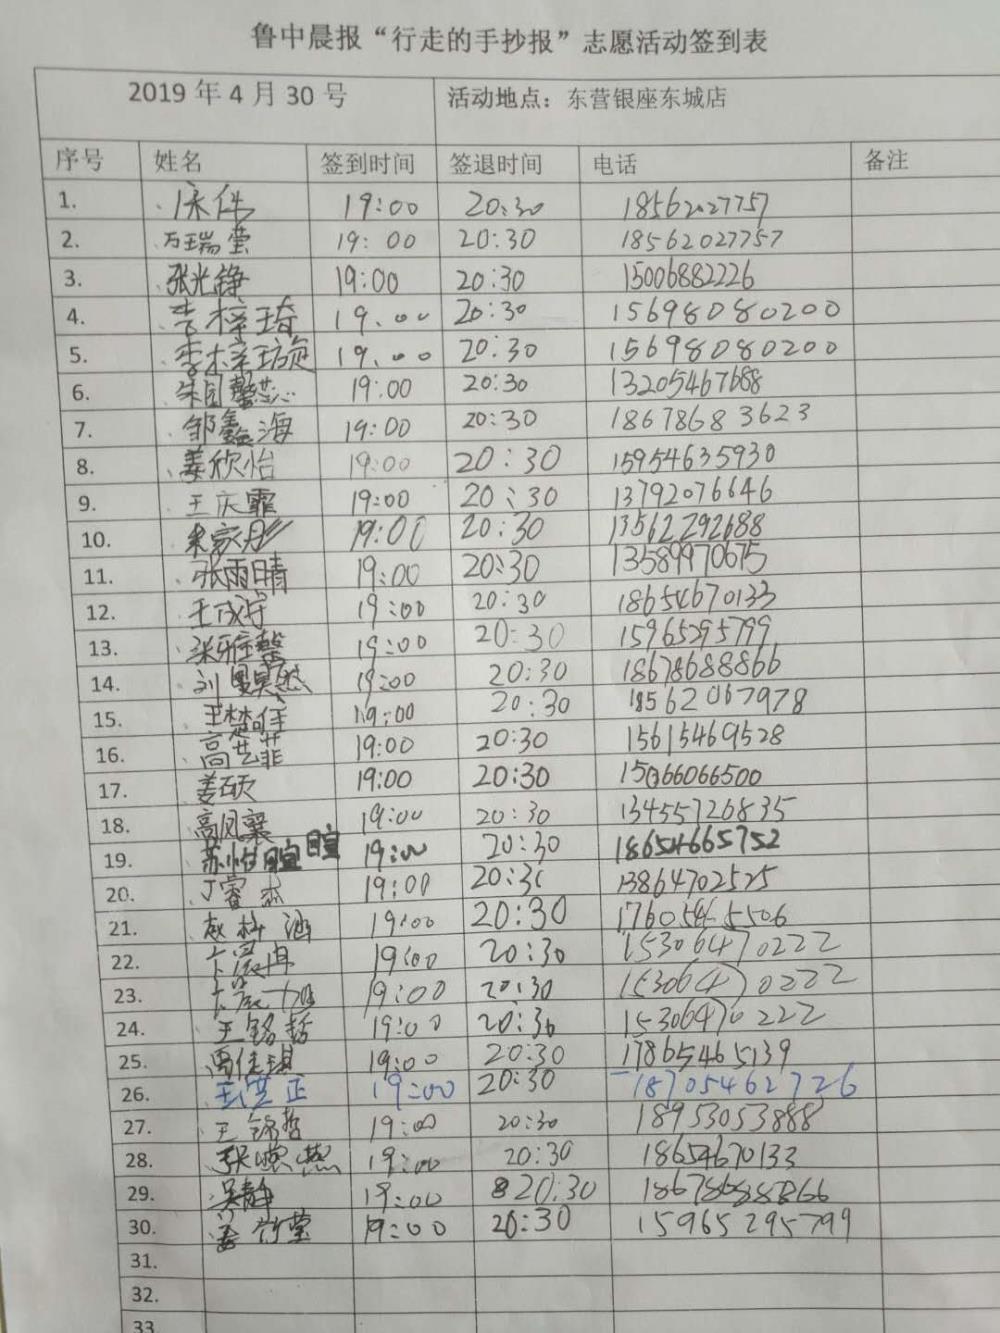 鲁中晨报“行走的手抄报”志愿活动签到表
2019 年 4 月 30 号 活动地点：东营银座东城店
序号 姓名 签到时间 签退时间 电话 备注
1. 19:00 20:30 18562027757
2. 万瑞莹 19:00 20:30 18562027757
3. 张光铮 19:00 20:30 15006882226
4. 李梓琦 19:00 20:30 15698080200
5. 李梓璇 19:00 20:30 15698080200
6. 19:00 20:30 13205467688
7. 邹鑫海 19:00 20:30 18678683623
8. 姜欣怡 19:00 20:30 15954635930
9. 王庆霏 19:00 20:30 13792076646
10. 宋家彤 19:00 20:30 13562292688
11. 张雨晴 19:00 20:30 13589970675
12. 19:00 20:30 18654670133
13. 张雅馨 19:00 20:30 15965295799
14. 刘昊然 19:00 20:30 18678688866
15. 王楚 19:00 20:30 18562067978
16. 高艺菲 19:00 20:30 15615469528
17. 姜硕 19:00 20:30 15066066500
18. 高凤 19:00 20:30 13455726835
19. 19:00 20:30 18654665752
20. 丁睿 19:00 20:30 13864702525
21. 19:00 20:30 17605465506
22. 19:00 20:30 15306470222
23. 19:00 20:30 15306470222
24. 王铭哲 19:00 20:30 15306470222
25. 19:00 20:30 17865465139
26. 19:00 20:30 18705462726
27. 王铭哲 19:00 20:30 18953053888
28. 19:00 20:30 18654670133
29. 吴静 19:00 20:30 18678688866
30. 19:00 20:30 15965295799
31.
32.
33.